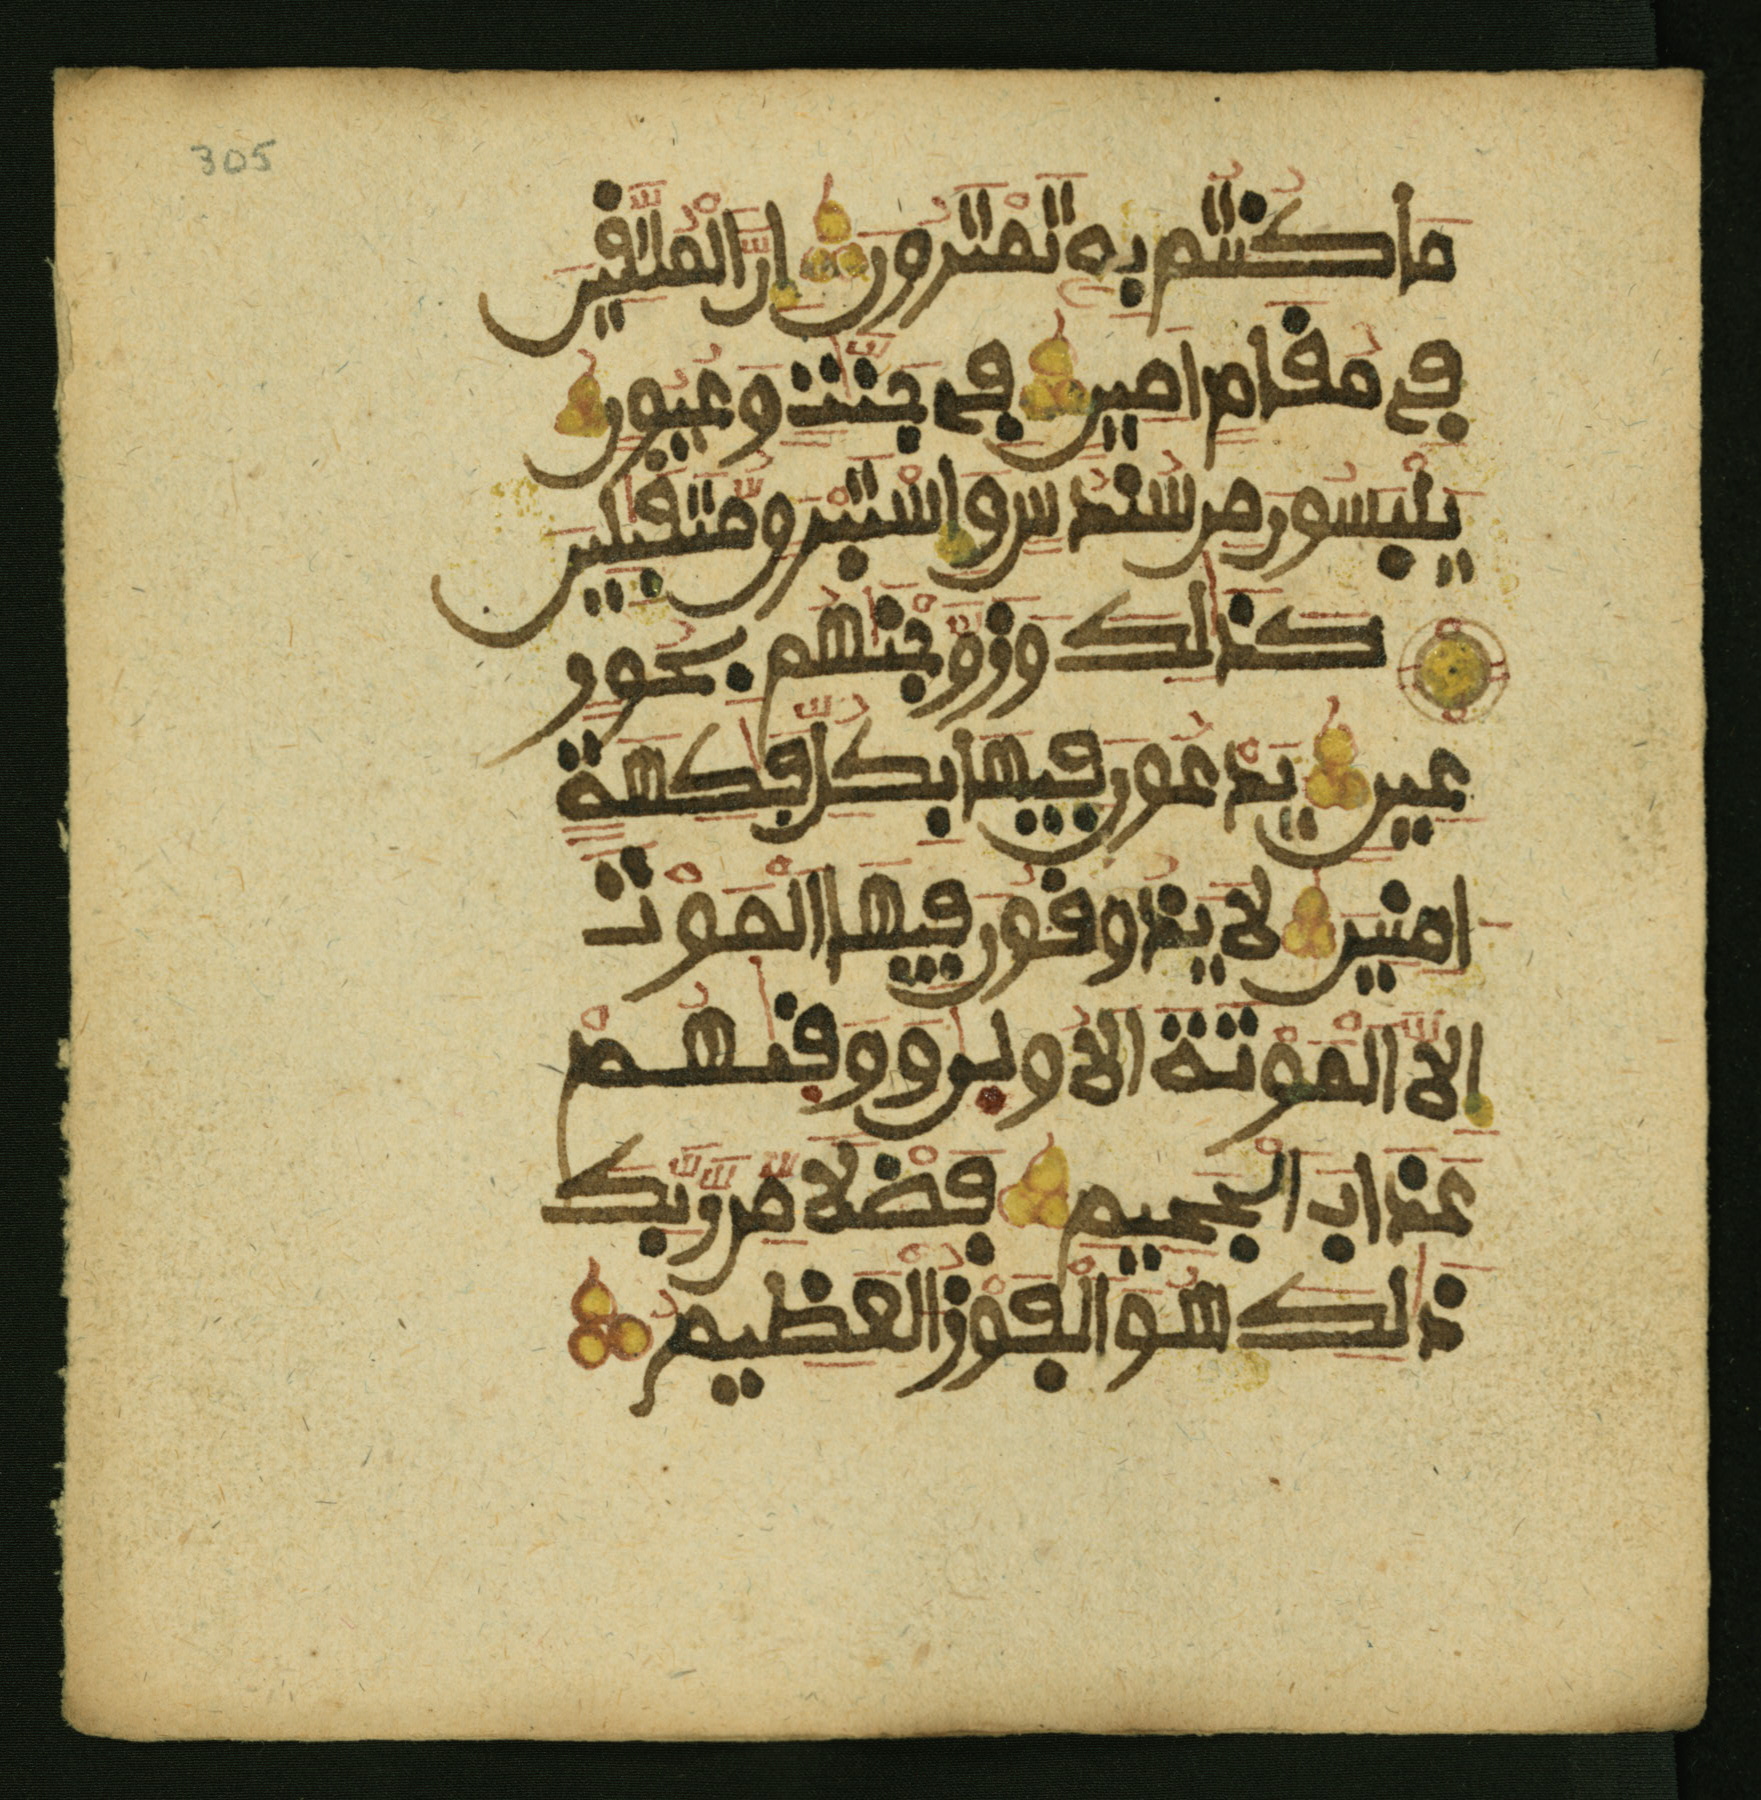 305
مَا كُنتُم بِهِ تَمْتَرُونَ إِنَّ الْمُتَّقِينَ
فِي مُقَامٍ اَمِينٍ فِي جَنَّٰتٍ وَعُيُونٍ
يَلْبَسُونَ مِن سُندُسٍ وَإِسْتَبْرَقٍ مُّتَقَٰبِلِينَ
كَذَٰلِكَ وَزَوَّجْنَٰهُم بِحُورٍ
عِينٍ يَدْعُونَ فِيهَا بِكُلِّ فَٰكِهَةٍ
اٰمِنِينَ لَا يَذُوقُونَ فِيهَا الْمَوْتَ
إِلَّا الْمَوْتَةَ الُاولَىٰ وَوَقَىٰهُمْ
عَذَابَ الْجَحِيمِ فَضْلًا مِّن رَّبِّكَ
ذَٰلِكَ هُوَ الْفَوْزُ الْعَظِيمُ